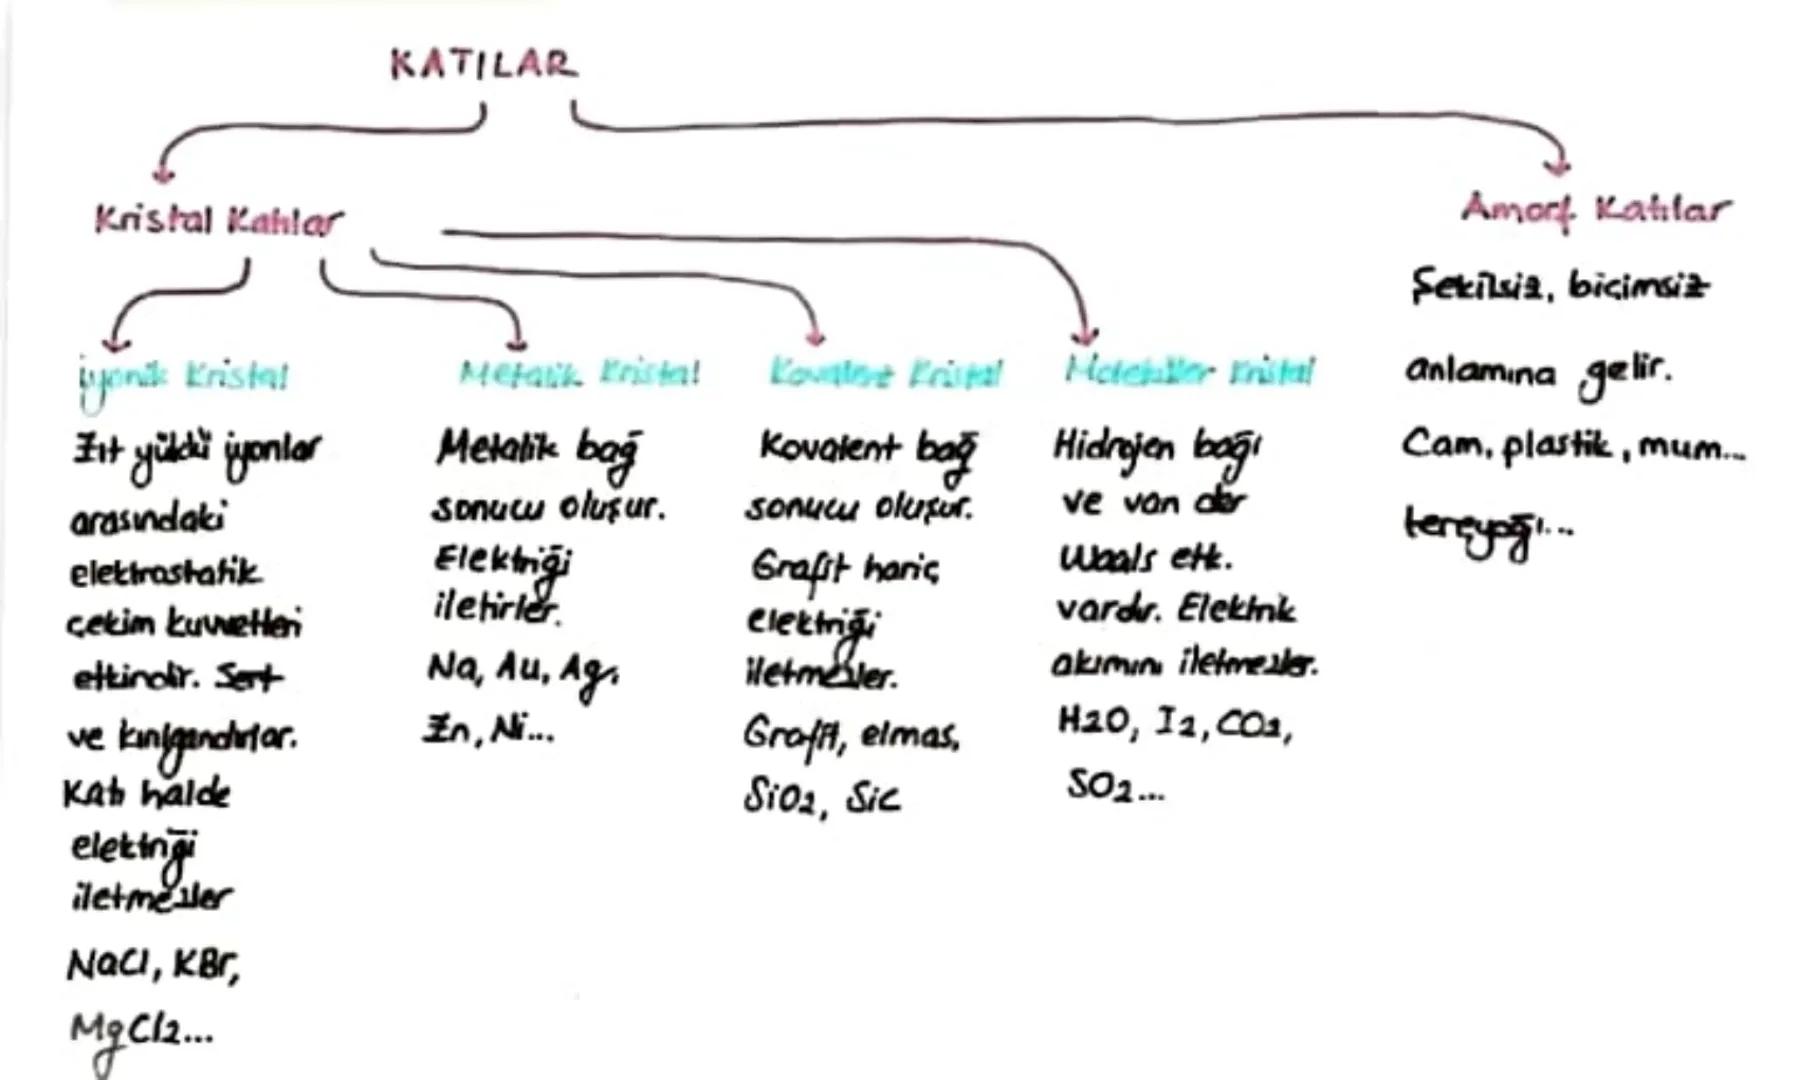 KATILAR
Kristal Katılar
Amorf Katılar
Şekilsiz, biçimsiz
anlamına gelir.
Cam, plastik, mum...
tereyağı...
iyonik Kristal
Zıt yüklü iyonlar
arasındaki
elektrostatik
çekim kuvvetleri
etkindir. Sert
ve kırılgandırlar.
Katı halde
elektriği
iletmezler
NaCl, KBr,
MgCl2...
Metalik Kristal
Metalik bağ
sonucu oluşur.
Elektriği
iletirler.
Na, Au, Ag,
Zn, Ni...
Kovalent Kristal
Kovalent bağ
sonucu oluşur.
Grafit hariç
elektriği
iletmezler.
Grafit, elmas,
SiO2, SiC
Moleküler Kristal
Hidrojen bağı
ve van der
Waals etk.
vardır. Elektrik
akımını iletmezler.
H2O, I2, CO2,
SO2...